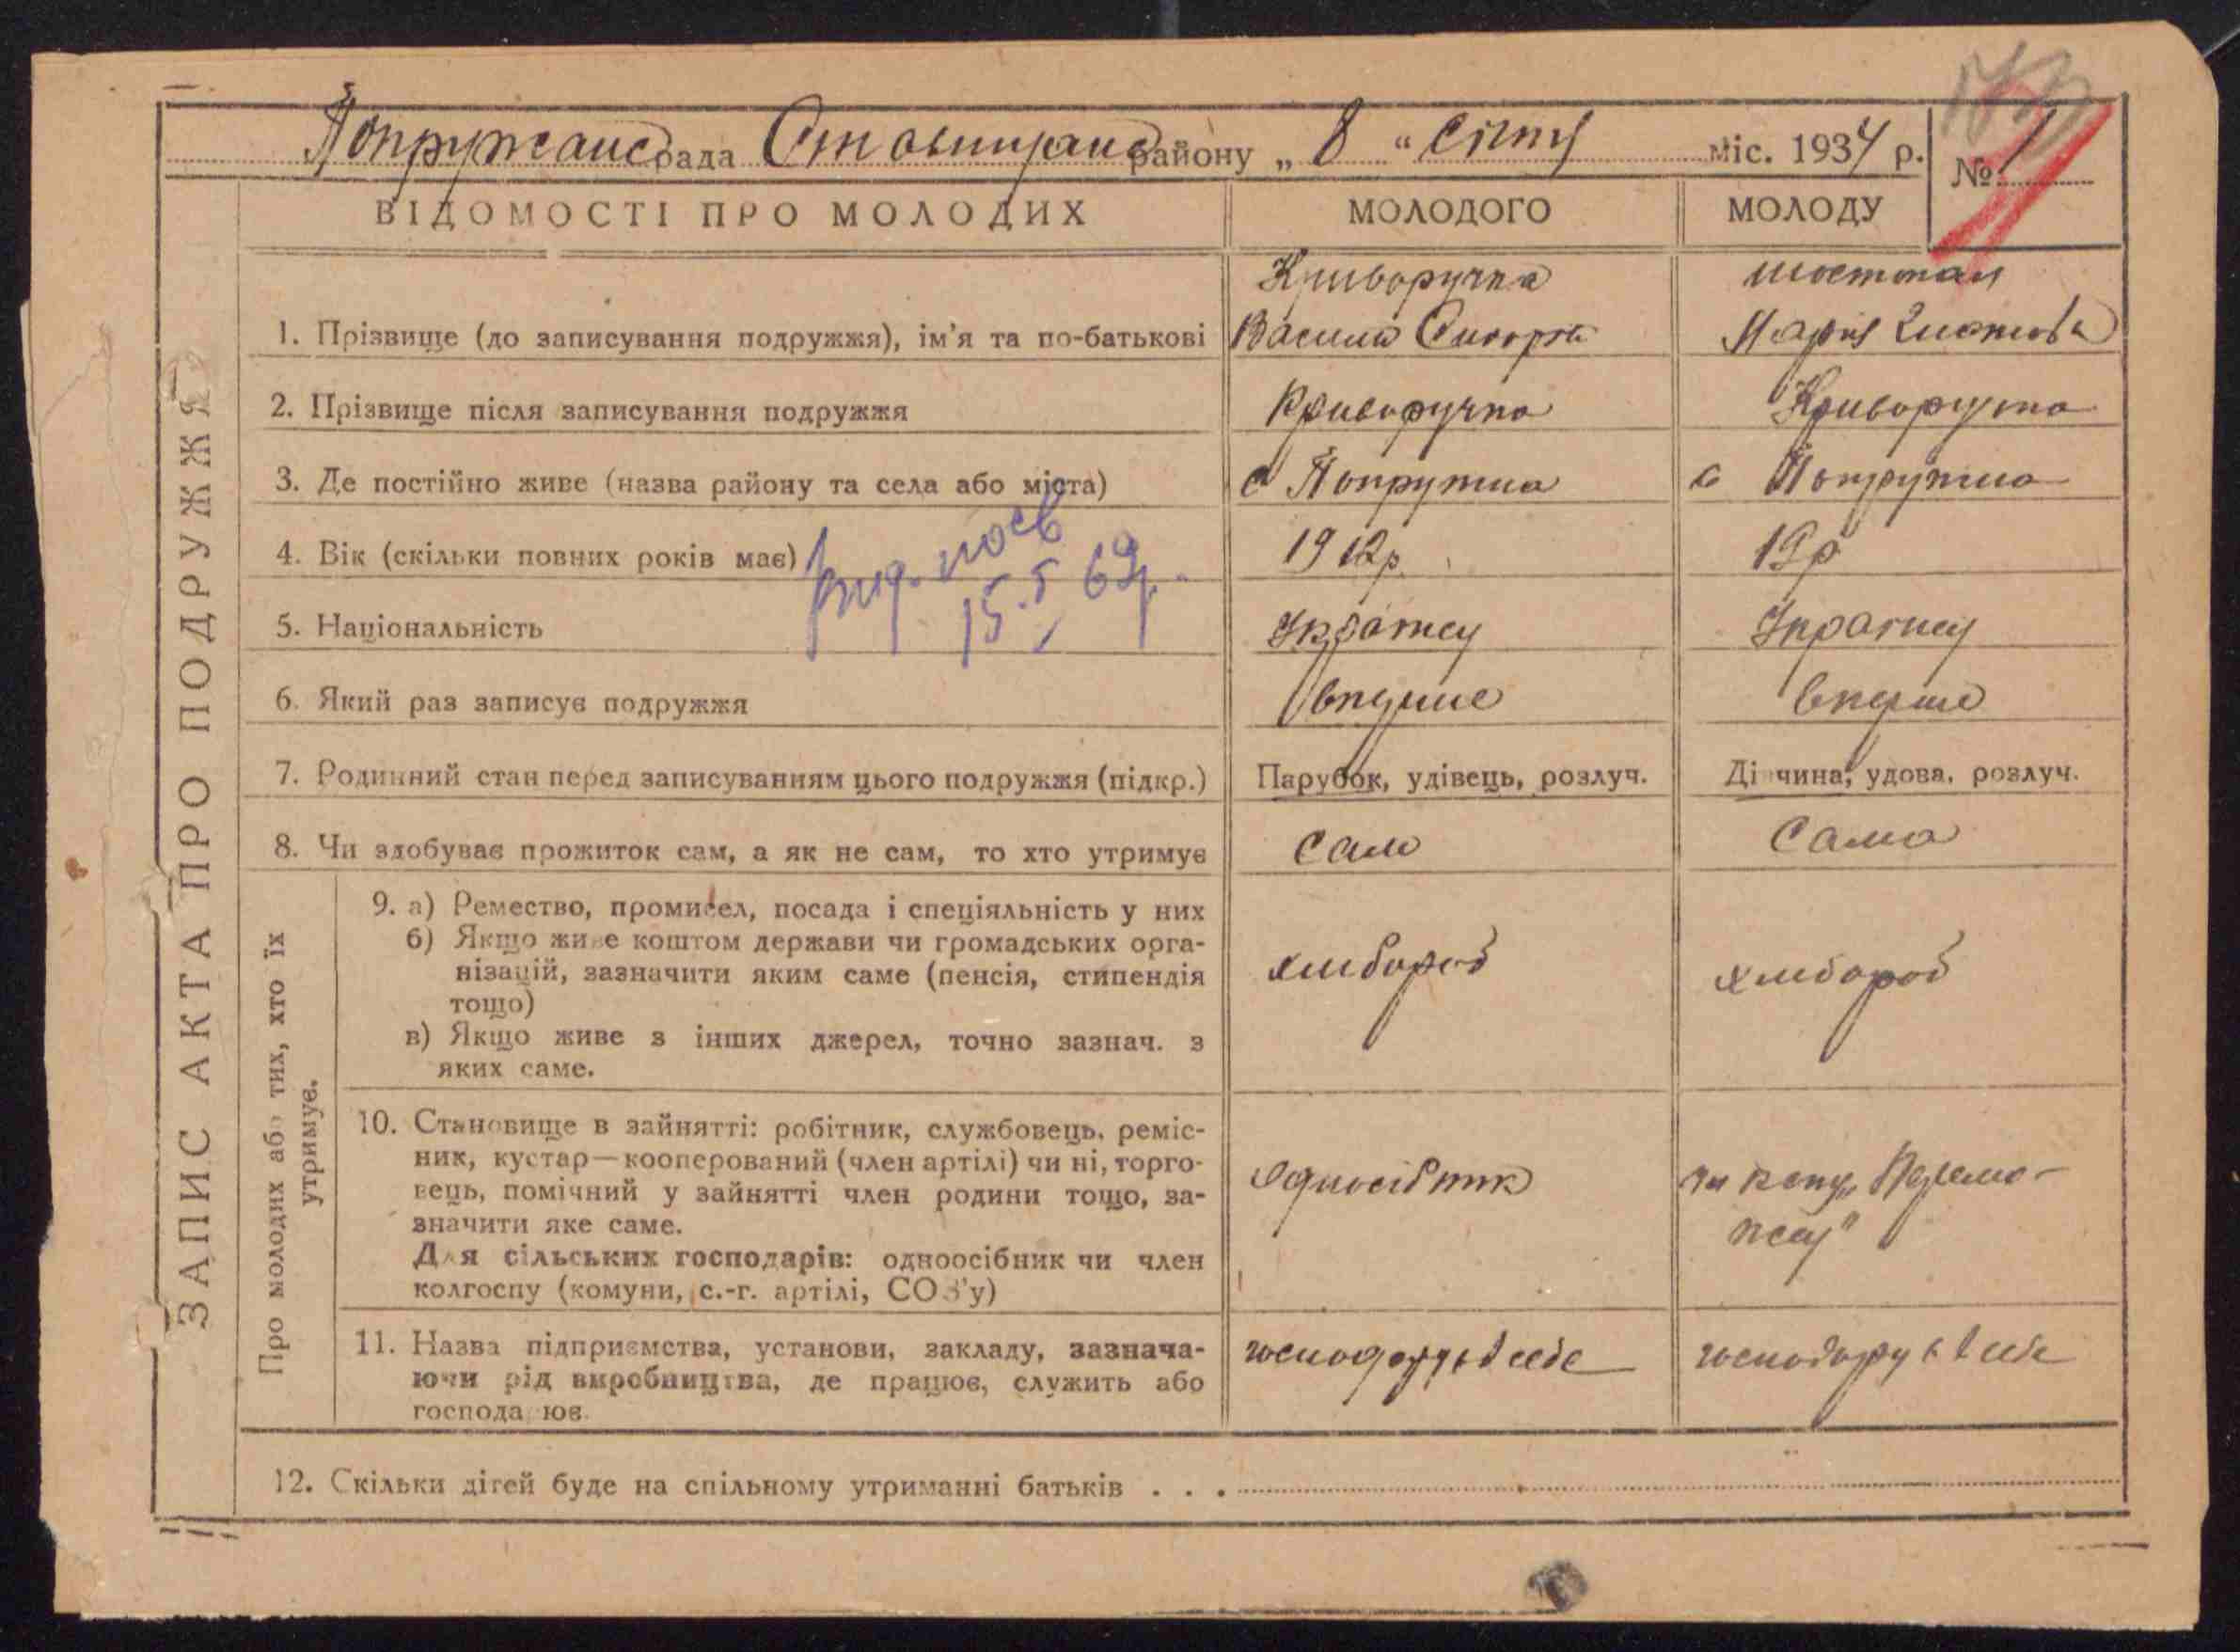 Попружанс рада Ставищанс району „ 8 " січня міс. 1934 р.
№ 1
ВІДОМОСТІ ПРО МОЛОДИХ МОЛОДОГО МОЛОДУ
ЗАПИС АКТА ПРО ПОДРУЖЖЯ
Криворучка
1. Прізвище (до записування подружжя), ім'я та по-батькові Василь Марія
2. Прізвище після записування подружжя Криворучка Криворучка
3. Де постійно живе (назва району та села або міста) с Попружна с Попружна
4. Вік (скільки повних років має) 1912р 19р
вид. посв
15.5 69р.
5. Національність
6. Який раз записує подружжя вперше вперше
7. Родинний стан перед записуванням цього подружжя (підкр.) Парубок, удівець, розлуч. Дівчина, удова, розлуч.
8. Чи здобуває прожиток сам, а як не сам, то хто утримує Сам Сама
Про молодих або тих, хто їх
утримує.
9. а) Ремество, промисел, посада і спеціяльність у них
б) Якщо живе коштом держави чи громадських орга-
нізацій, зазначити яким саме (пенсія, стипендія
тощо)
в) Якщо живе з інших джерел, точно зазнач. з
яких саме.
хлибороб хлибороб
10. Становище в зайнятті: робітник, службовець, реміс-
ник, кустар—кооперований (член артілі) чи ні, торго-
вець, помічний у зайнятті член родини тощо, за-
значити яке саме.
Для сільських господарів: одноосібник чи член
колгоспу (комуни, с.-г. артілі, СОЗ'у)
односібник
11. Назва підприємства, установи, закладу, зазнача-
ючи рід виробництва, де працює, служить або
господарює.
господару в себе господару в себе
12. Скільки дітей буде на спільному утриманні батьків . . .